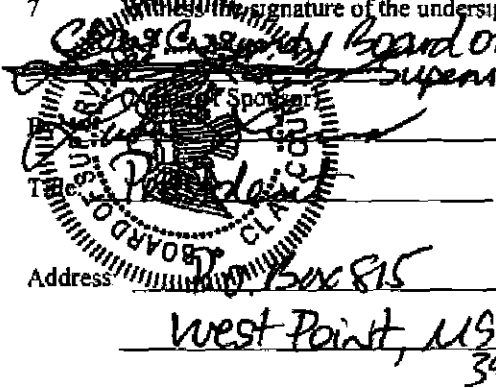 7 Witness the signature of the undersi
Clay County Board of
Supervi
(Name of Sponsor)
By
Title President
BOARD OF SUPERV CLAY COU
Address P.O. Box 815
West Point, MS
39